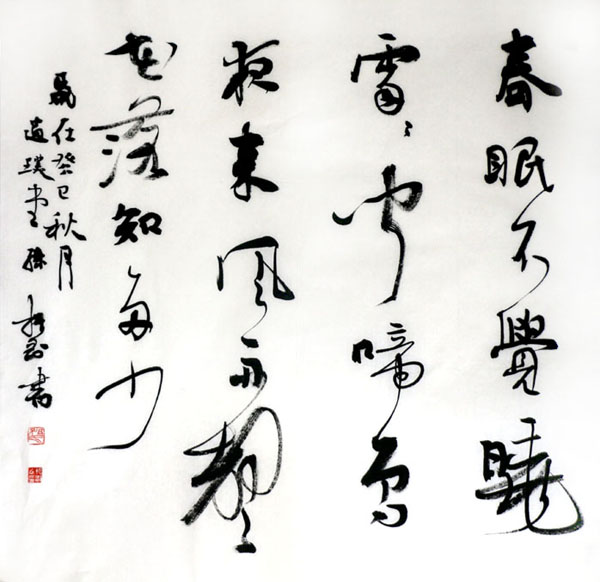 春眠不覺曉
處々聞啼鳥
夜來風雨聲
花落知多少
歲在癸巳秋月
道璞堂孫 書